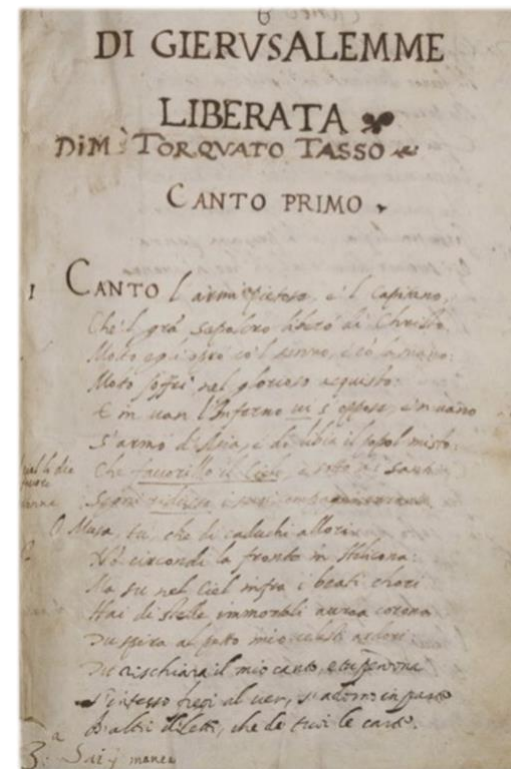 DI GIERVSALEMME
LIBERATA
DI M. TORQVATO TASSO
CANTO PRIMO.
1 CANTO l'armi pietose, e'l Capitano,
Che'l grā Sepolcro liberò di Christo.
Molto egli oprò co'l senno, e cō la mano:
Molto soffrì nel glorioso acquisto:
E in van l'Inferno vi s'oppose, e'n vano
S'armò d'Asia, e di Libia il popol misto.
Che favorillo il Cielo, e sotto a i santi
Segni ridusse i suoi
O Musa, tu, che di caduchi allori
Nō circondi la fronte in Helicona:
Ma su nel Ciel infra i beati chori
Hai di stelle immortali aurea corona
Tu spira al petto mio celesti ardori:
Tu rischiara il mio canto, e tu perdona
S'intesso fregi al ver, s'adorno in parte
D'altri diletti, che de' tuoi le carte.
3.